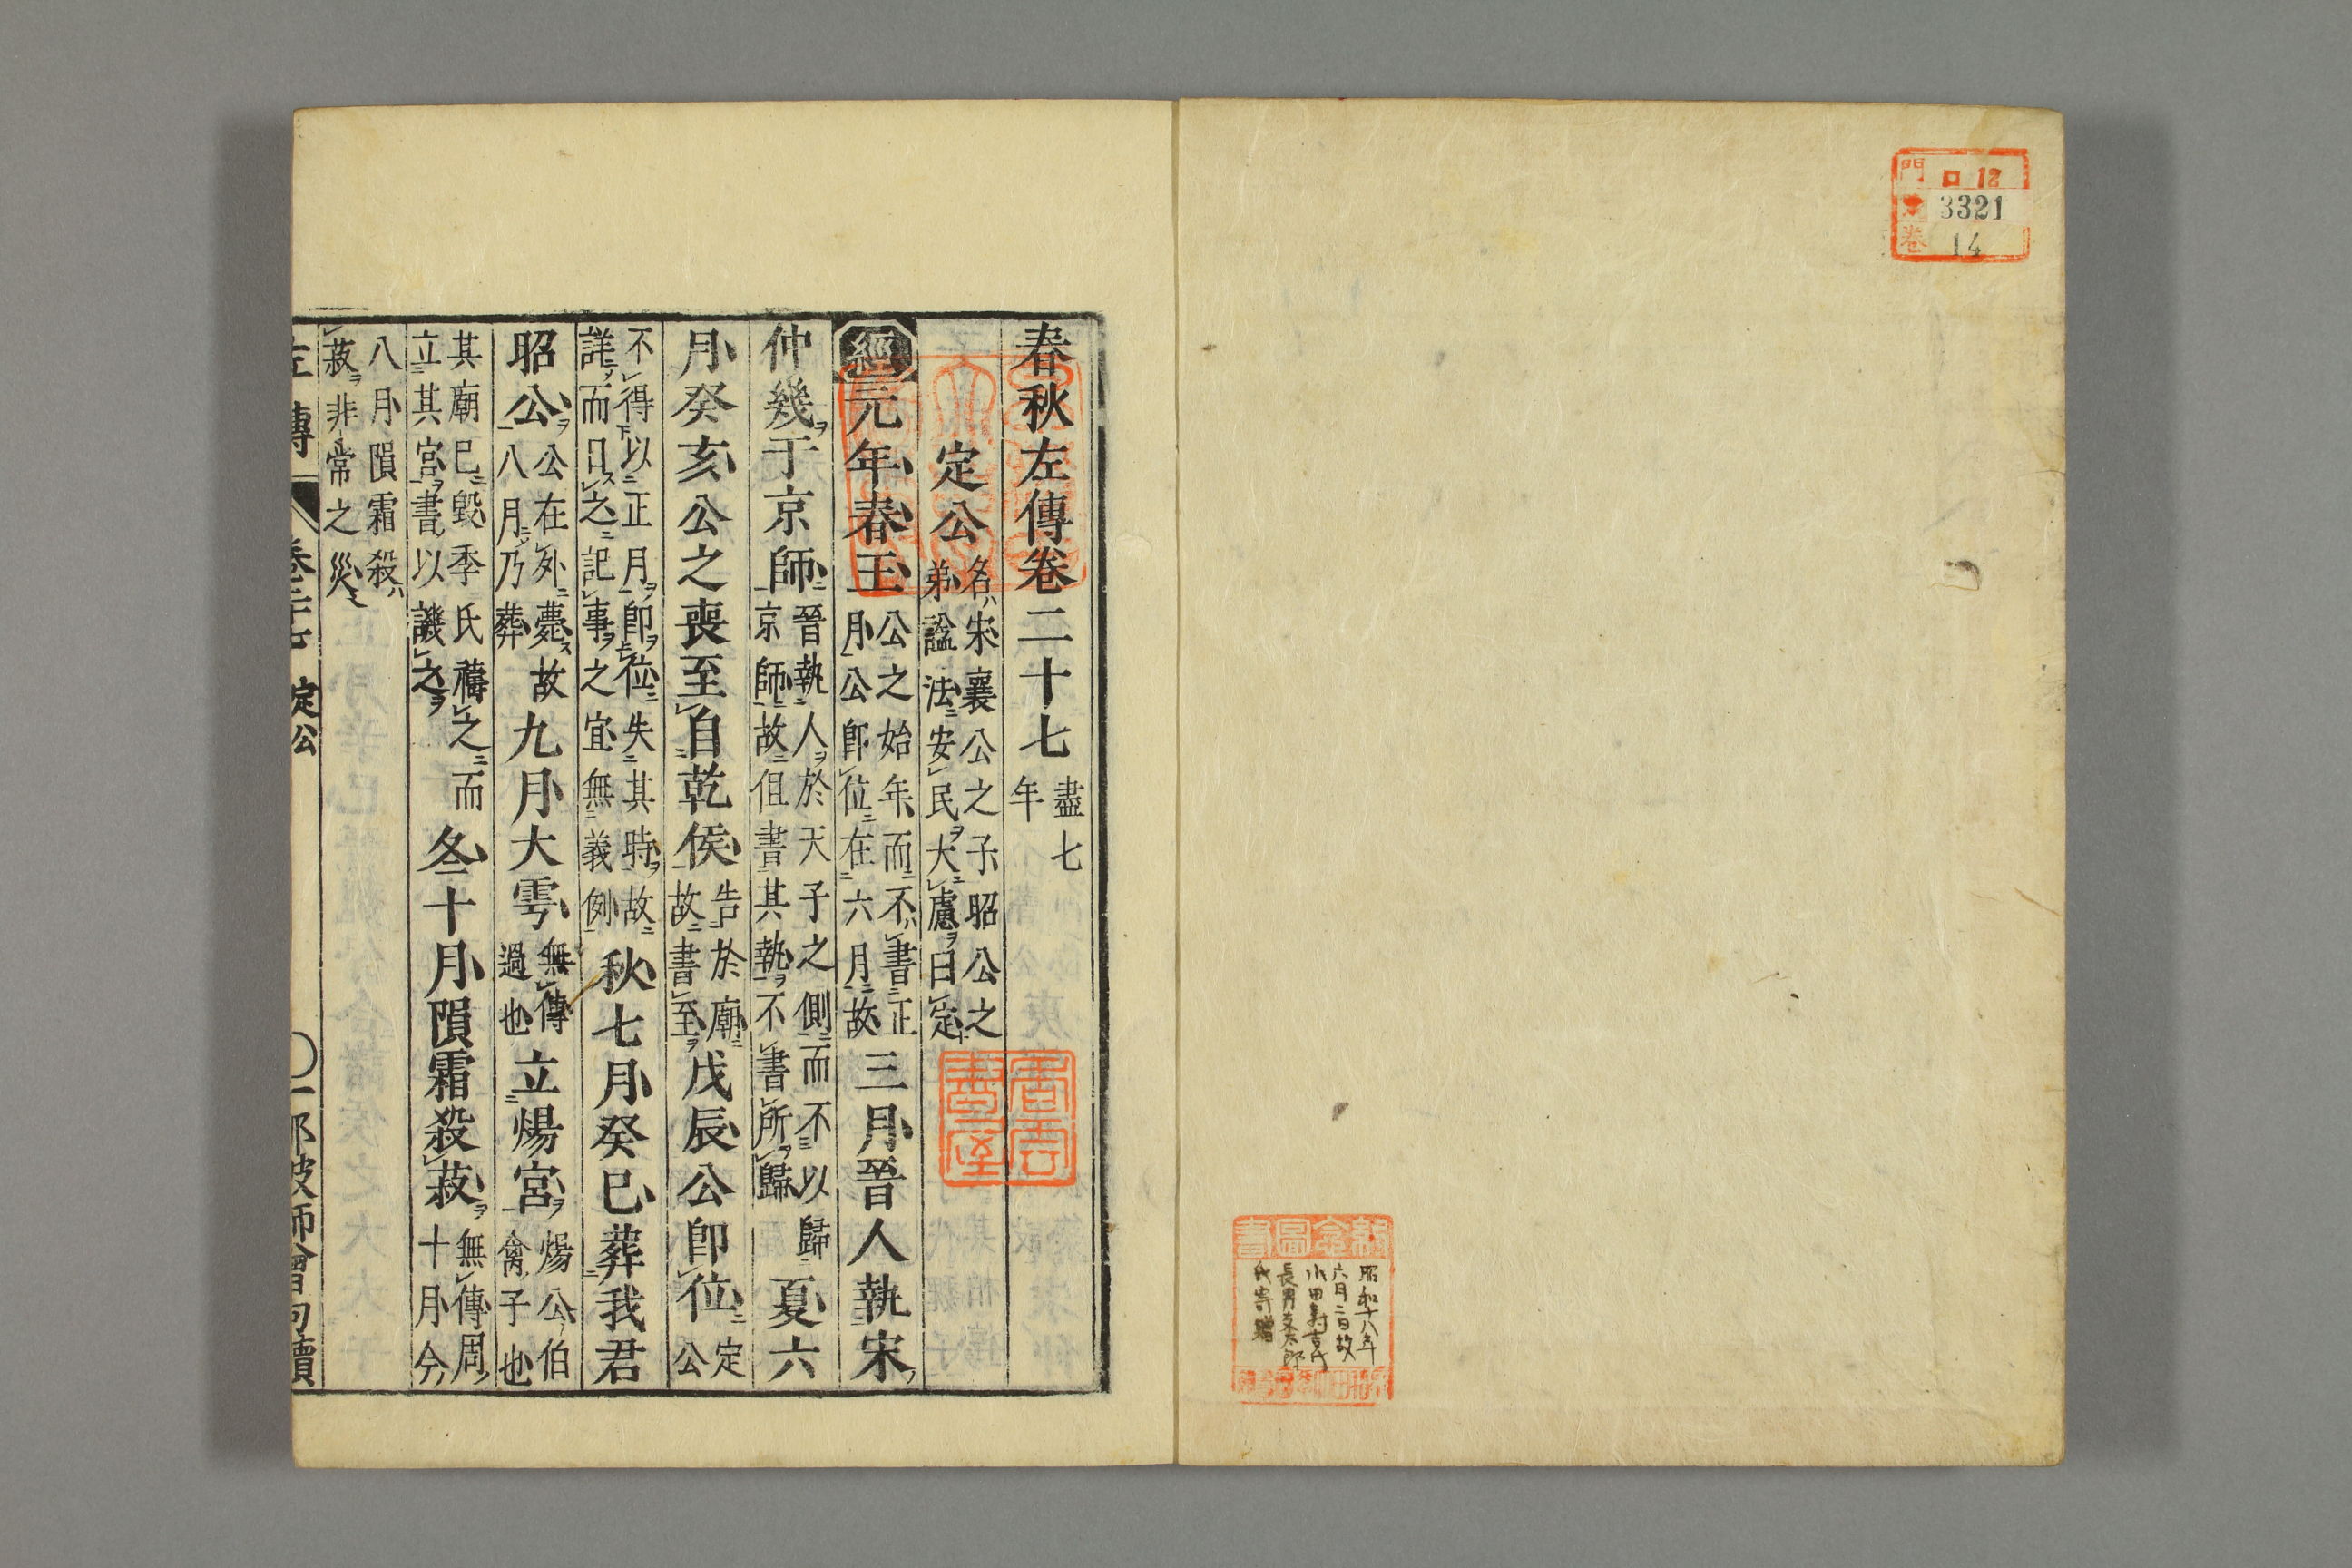 門 ロ 12
3321
卷 14
昭和十八年
六月二日故
小田
長男
氏寄贈
春秋左傳卷二十七 盡七年
定公 名宋襄公之子昭公之弟諡法安民大慮曰定
經元年春王 公之始年而不書正月公卽位在六月故 三月晉人執宋
仲幾于京師 晉執人於天子之側而不以歸京師故但書其執不書所歸 夏六
月癸亥公之喪至自乾侯 告於廟故書至 戊辰公卽位 定公
不得以正月卽位失其時故詳而日之記事之宜無義例 秋七月癸巳葬我君
昭公 公在外薨故八月乃葬 九月大雩 無傳過也 立煬宮 煬公伯禽子也
其廟已毀季氏禱之而立其宮書以譏之 冬十月隕霜殺菽 無傳周十月今
八月隕霜殺菽非常之災
左傳 卷二十七 定公 一 那波師曾句讀